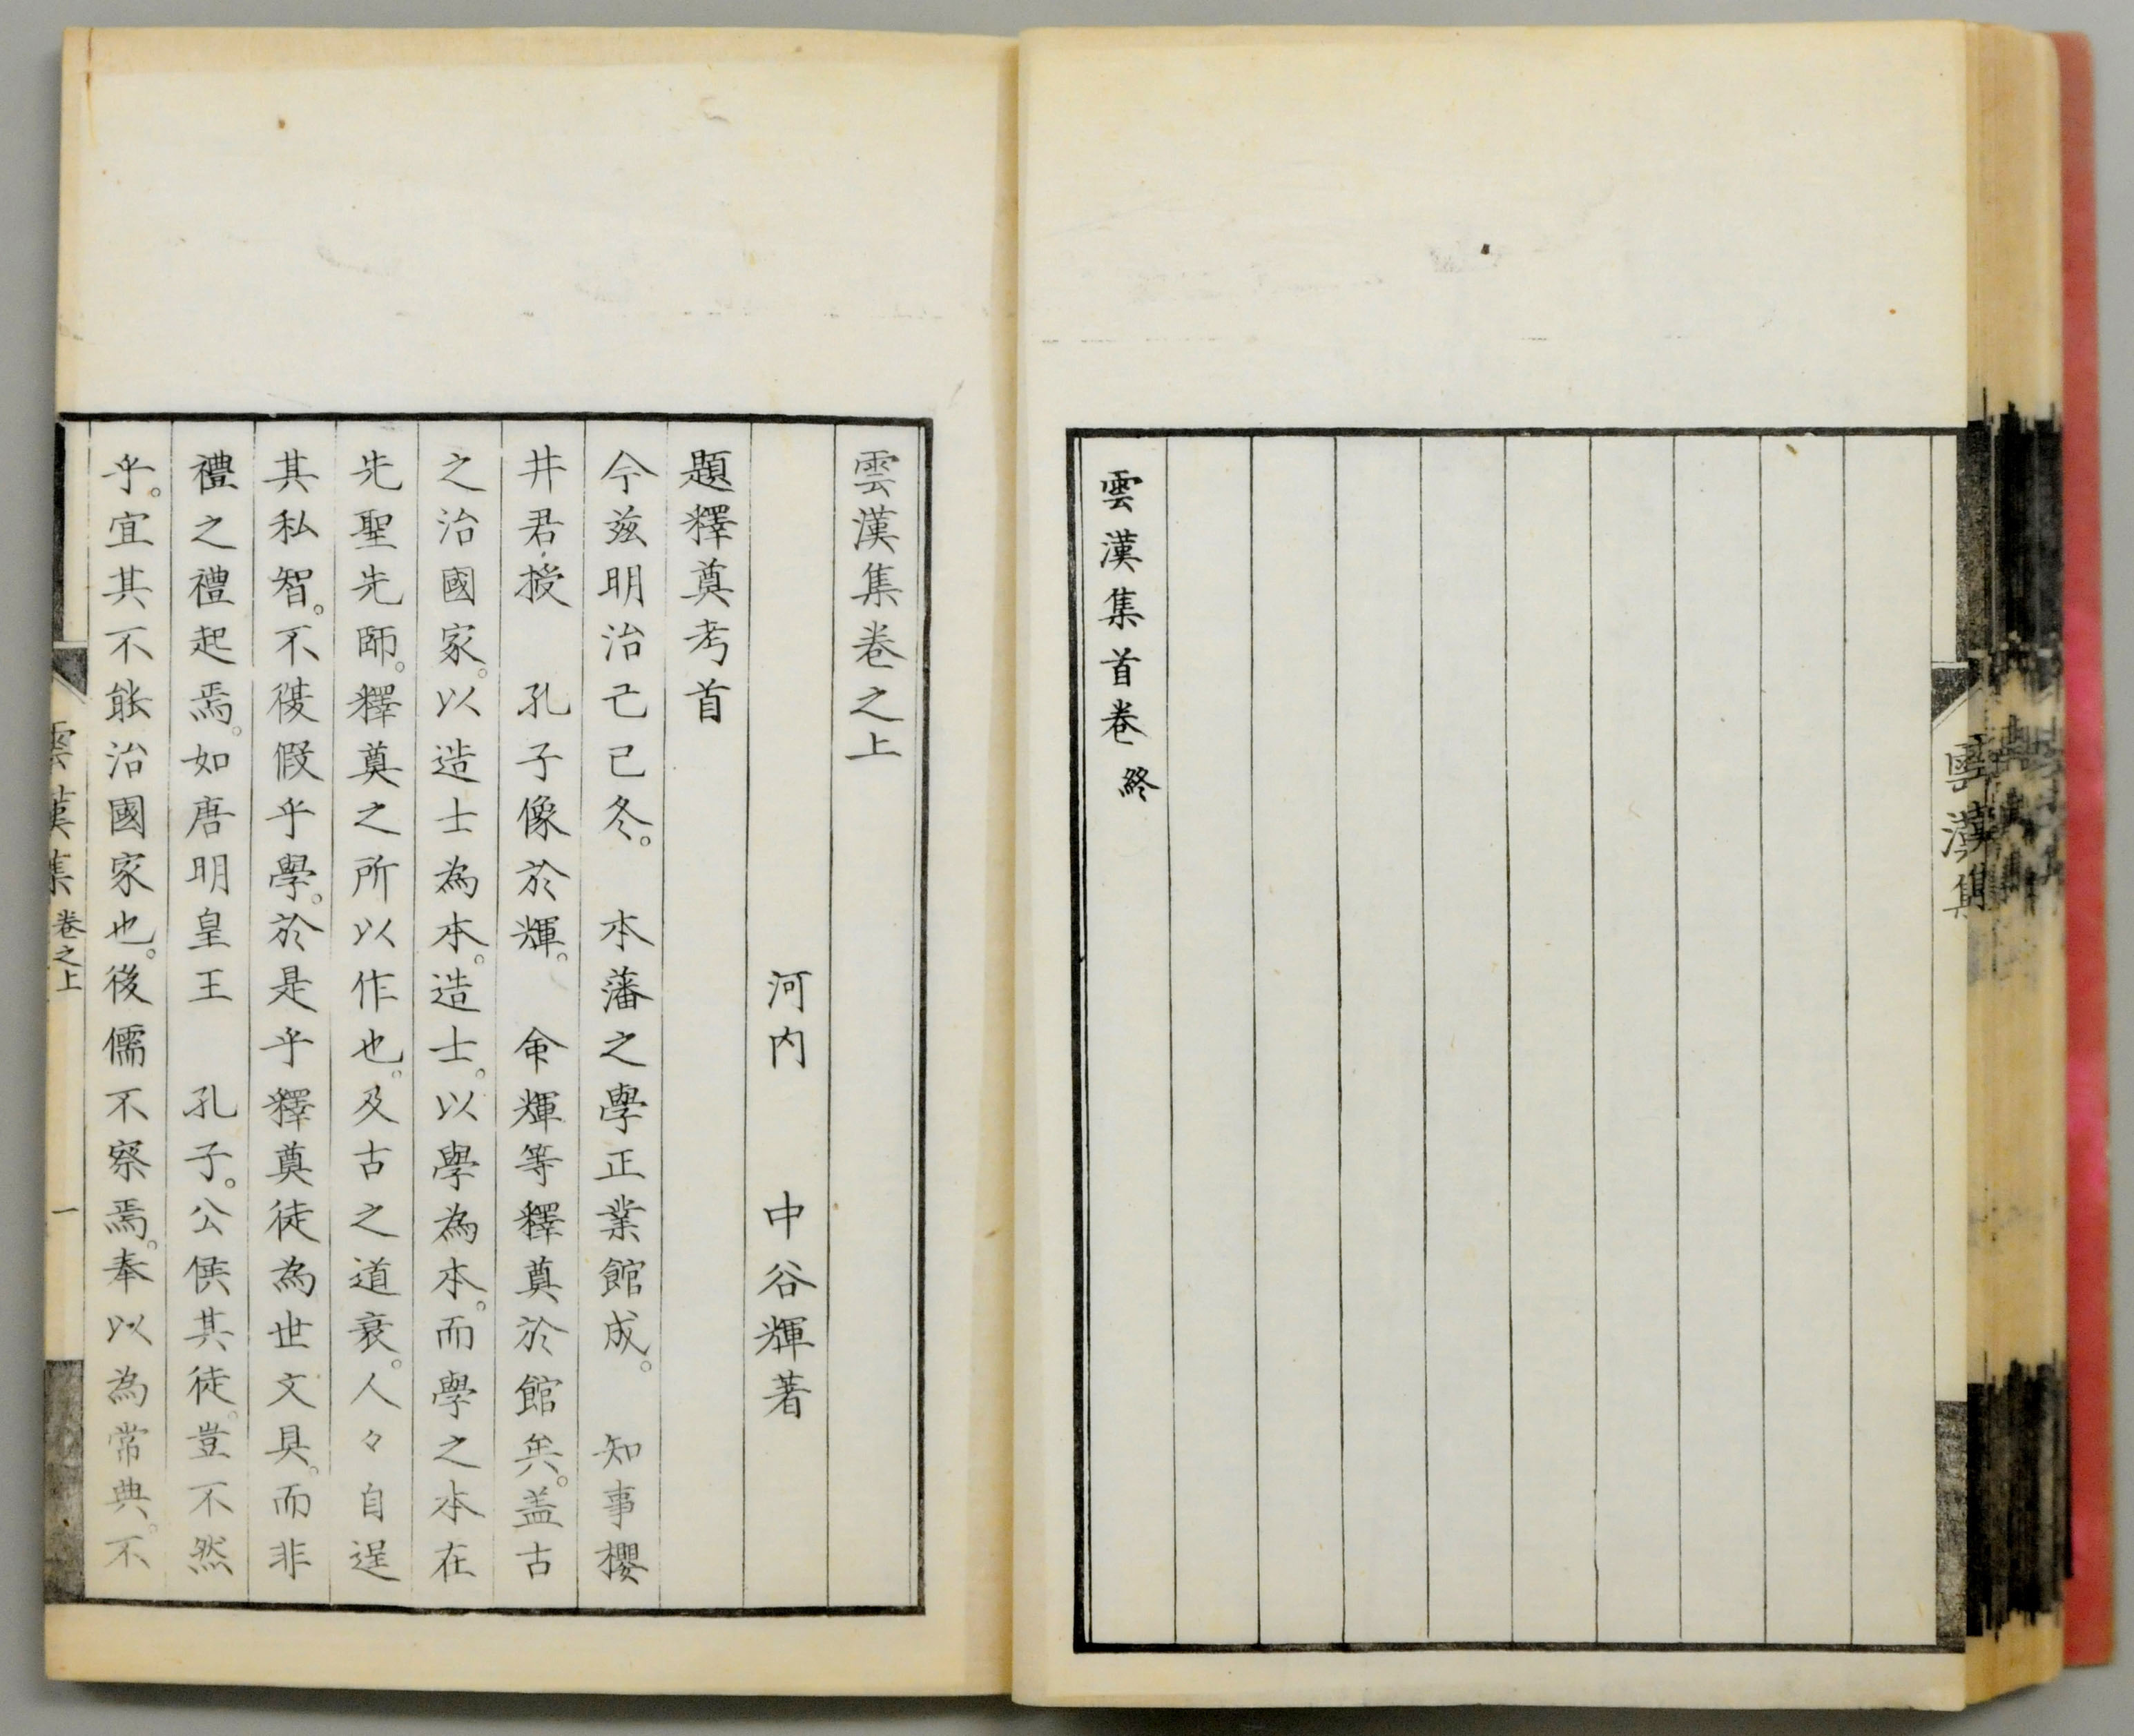 雲漢集
雲漢集首卷 終
雲漢集卷之上
河内 中谷輝著
題釋奠考首
今兹明治己巳冬。 本藩之學正業館成。 知事櫻
井君授 孔子像於輝。 命輝等釋奠於館矣。盖古
之治國家。以造士為本。造士。以學為本。而學之本在
先聖先師。釋奠之所以作也。及古之道衰。人々自逞
其私智。不復假乎學。於是乎釋奠徒為世文具。而非
禮之禮起焉。如唐明皇王 孔子。公侯其徒。豈不然
乎。宜其不能治國家也。後儒不察焉。奉以為常典。不
雲漢集 卷之上 一